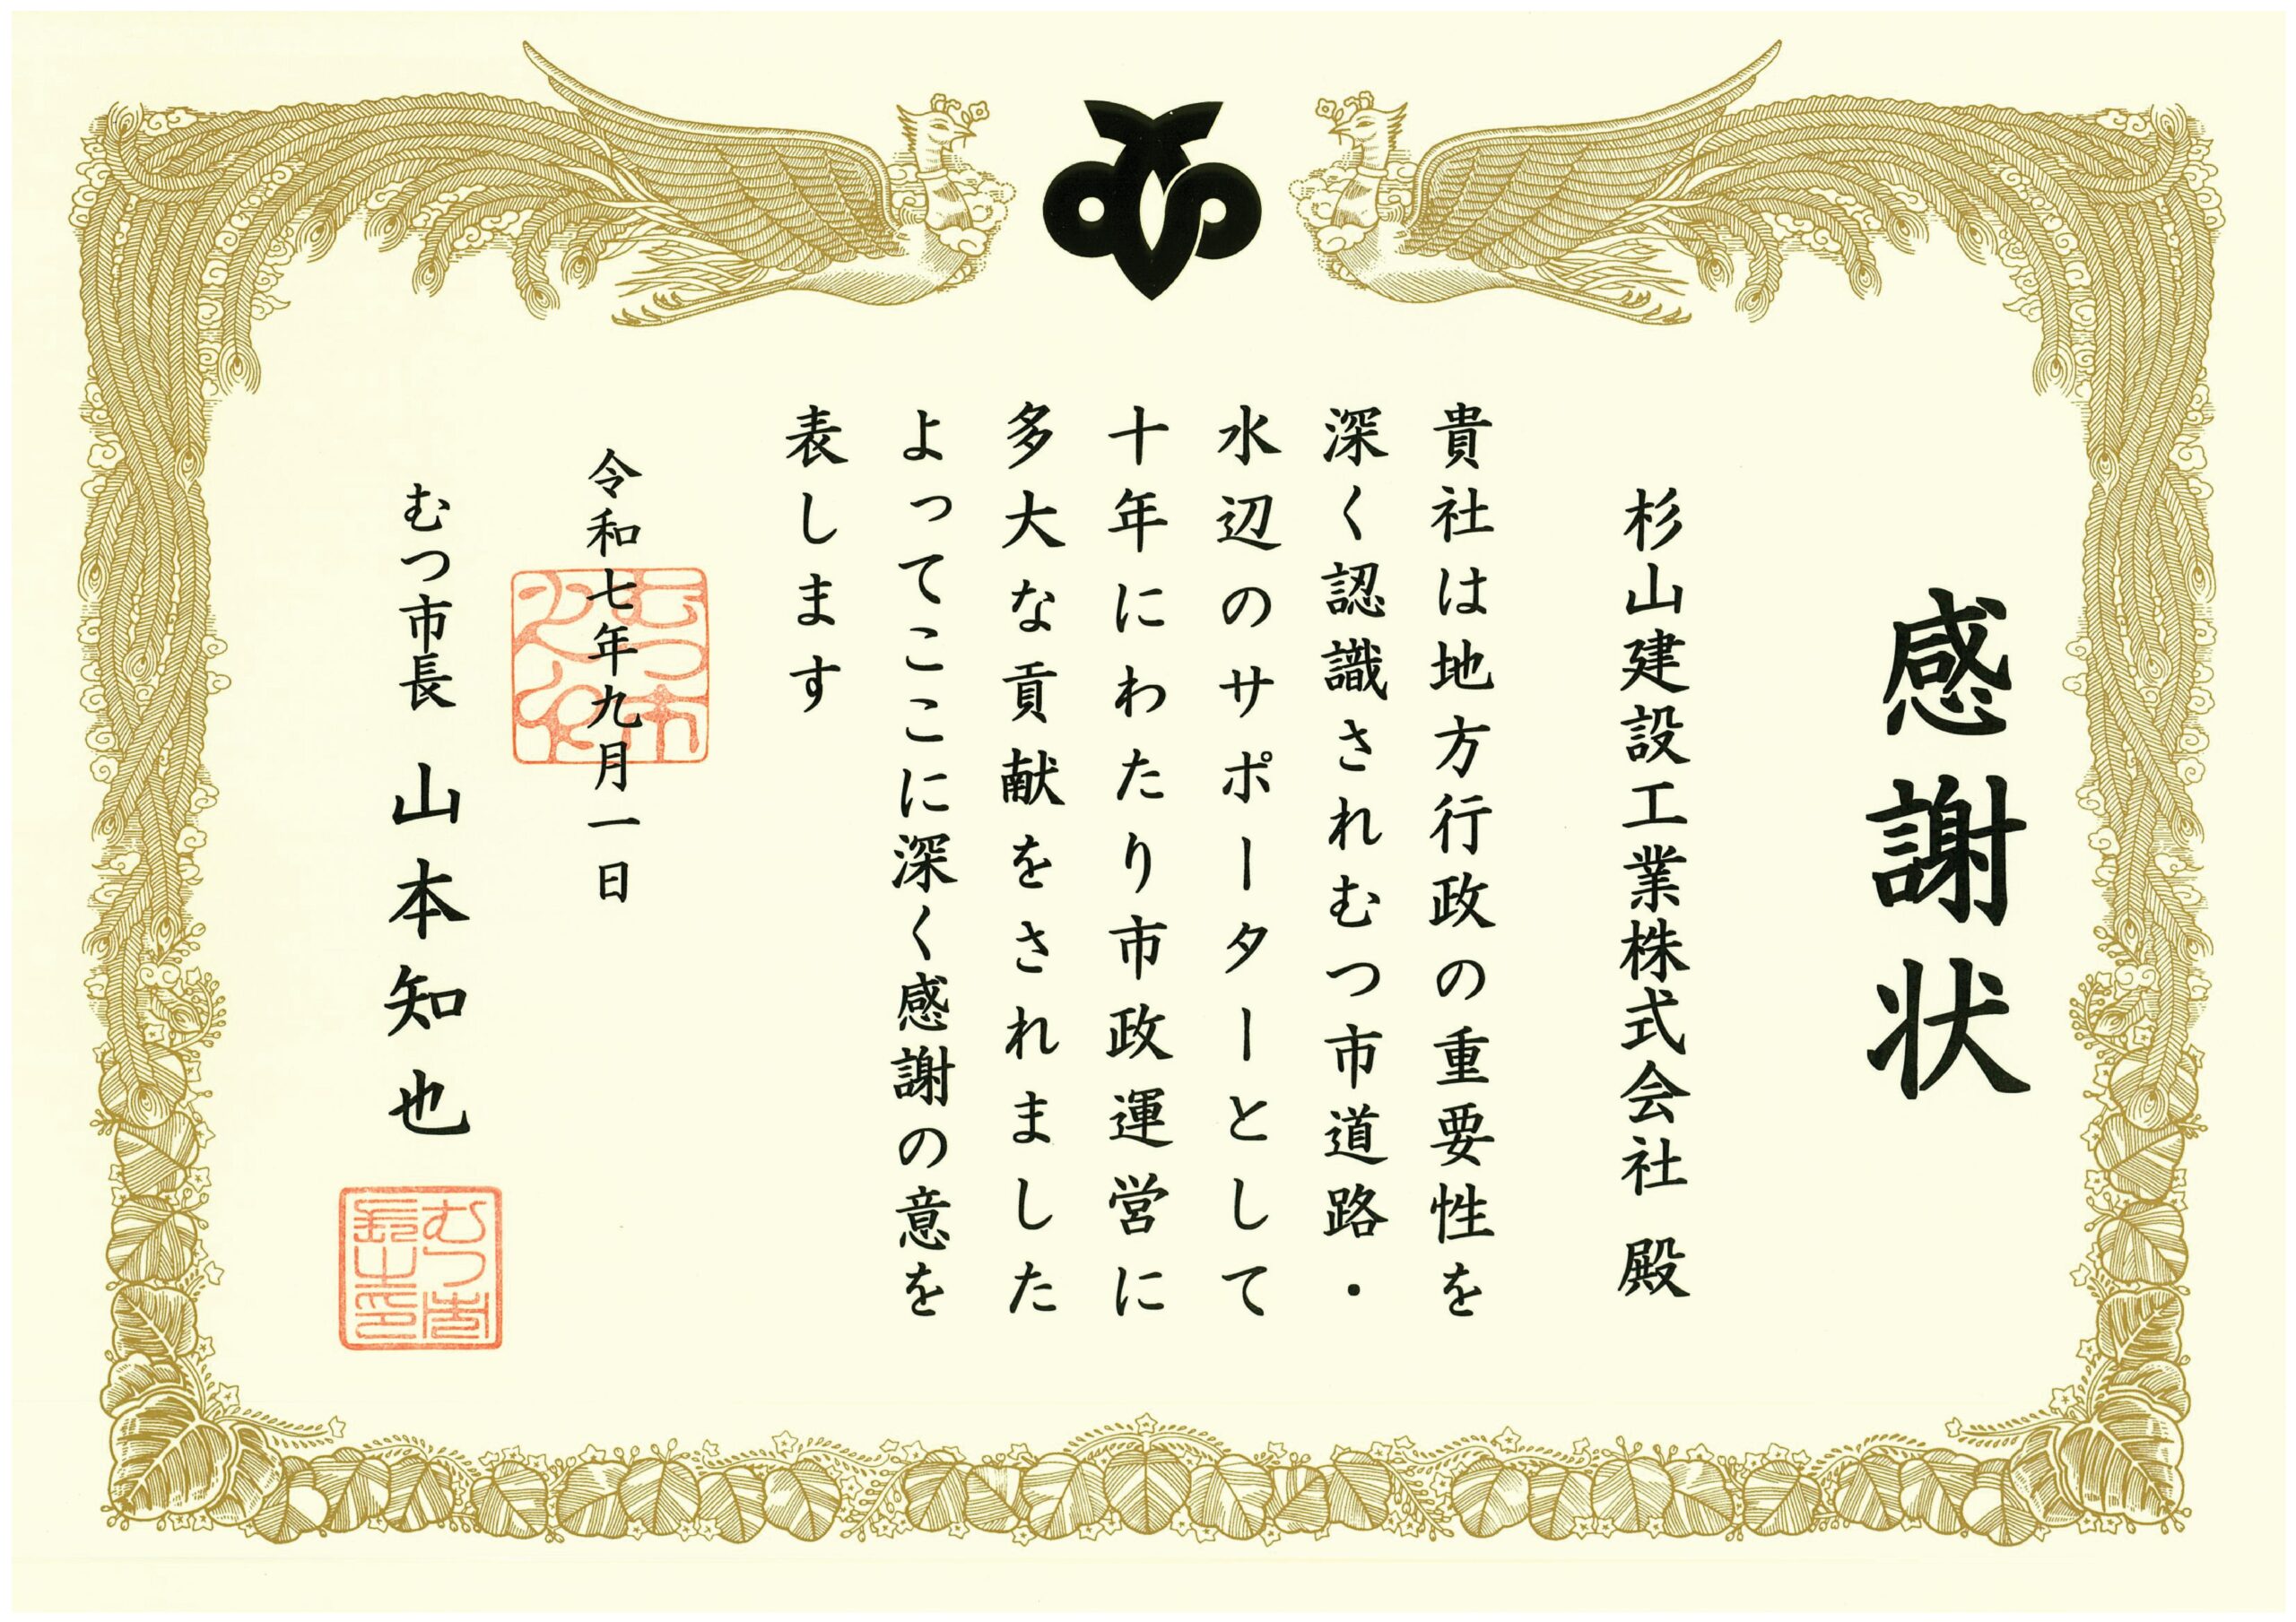 感謝状
杉山建設工業株式会社 殿
貴社は地方行政の重要性を
深く認識されむつ市道路・
水辺のサポーターとして
十年にわたり市政運営に
多大な貢献をされました
よってここに深く感謝の意を
表します
令和七年九月一日
むつ市長 山本知也
むつ市
長之印